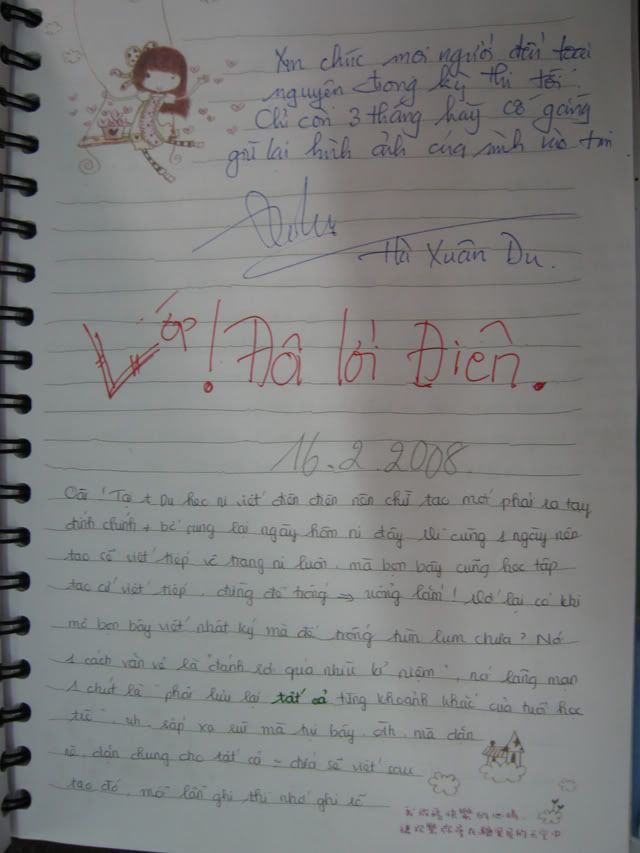 Xin chúc mọi người đều toại
nguyện trong kỳ thi tới.
Chỉ còn 3 tháng hãy cố gắng
giữ lại hình ảnh của mình vào tim
Hà Xuân Du.
Lớp! Đôi lời Điên.
16.2.2008
Oài! Tại t Du học ni viết điên điên nên chừ tao mới phải ra tay
đính chính + bổ sung lại ngày hôm ni đây. Vì cùng 1 ngày nên
tao sẽ viết tiếp về trang ni luôn, mà bọn bây cũng học tập
tao cứ viết tiếp, đừng để trống => uổng lắm! Với lại có khi
mô bọn bây viết nhật ký mà để trống tùm lum chưa? Nói
1 cách văn vẻ là "đánh rơi quá nhiều kỉ niệm", nói lãng mạn
1 chút là "phải lưu lại tất cả từng khoảnh khắc của tuổi học
trò". Uh, sắp xa rùi mà tụi bây. Ah, mà dặn
rồi, dặn chung cho tất cả - đứa sẽ viết sau
tao đó, mỗi lần ghi thì nhớ ghi rõ